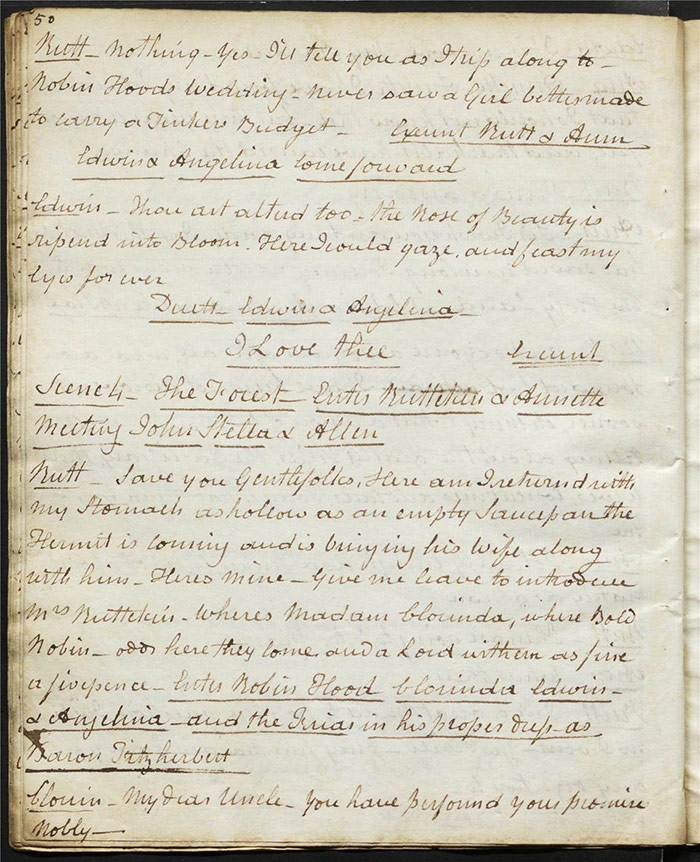 50
Rutt – Nothing – Yes – I'll tell you as I trip along to –
Robin Hoods Wedding – never saw a Girl better made
to carry a Tinkers Budget – Exeunt Rutt & Ann
Edwin & Angelina come forward
Edwin – Thou art alterd too – the Rose of Beauty is
ripend into Bloom. Here I could gaze, and feast my
Eyes for ever
Duett – Edwin & Angelina –
I Love thee Exeunt
Scene 4 – The Forest – Enter Ruttekin & Annette
Meeting John Stella & Allen
Rutt – Save you Gentlefolks, Here am I returnd with
my Stomach as hollow as an empty Saucepan the
Hermit is coming and is bringing his Wife along
with him – Heres mine – Give me leave to introduce
Mrs Ruttekin – Wheres Madam Clorinda, where Bold
Robin – odds here they come, and a Lord with em as fine
a fivepence – Enter Robin Hood Clorinda Edwin –
& Angelina – and the Friar in his proper dress as
Baron Fitzherbert
Clorin – My dear Uncle – You have performd your promise
Nobly –